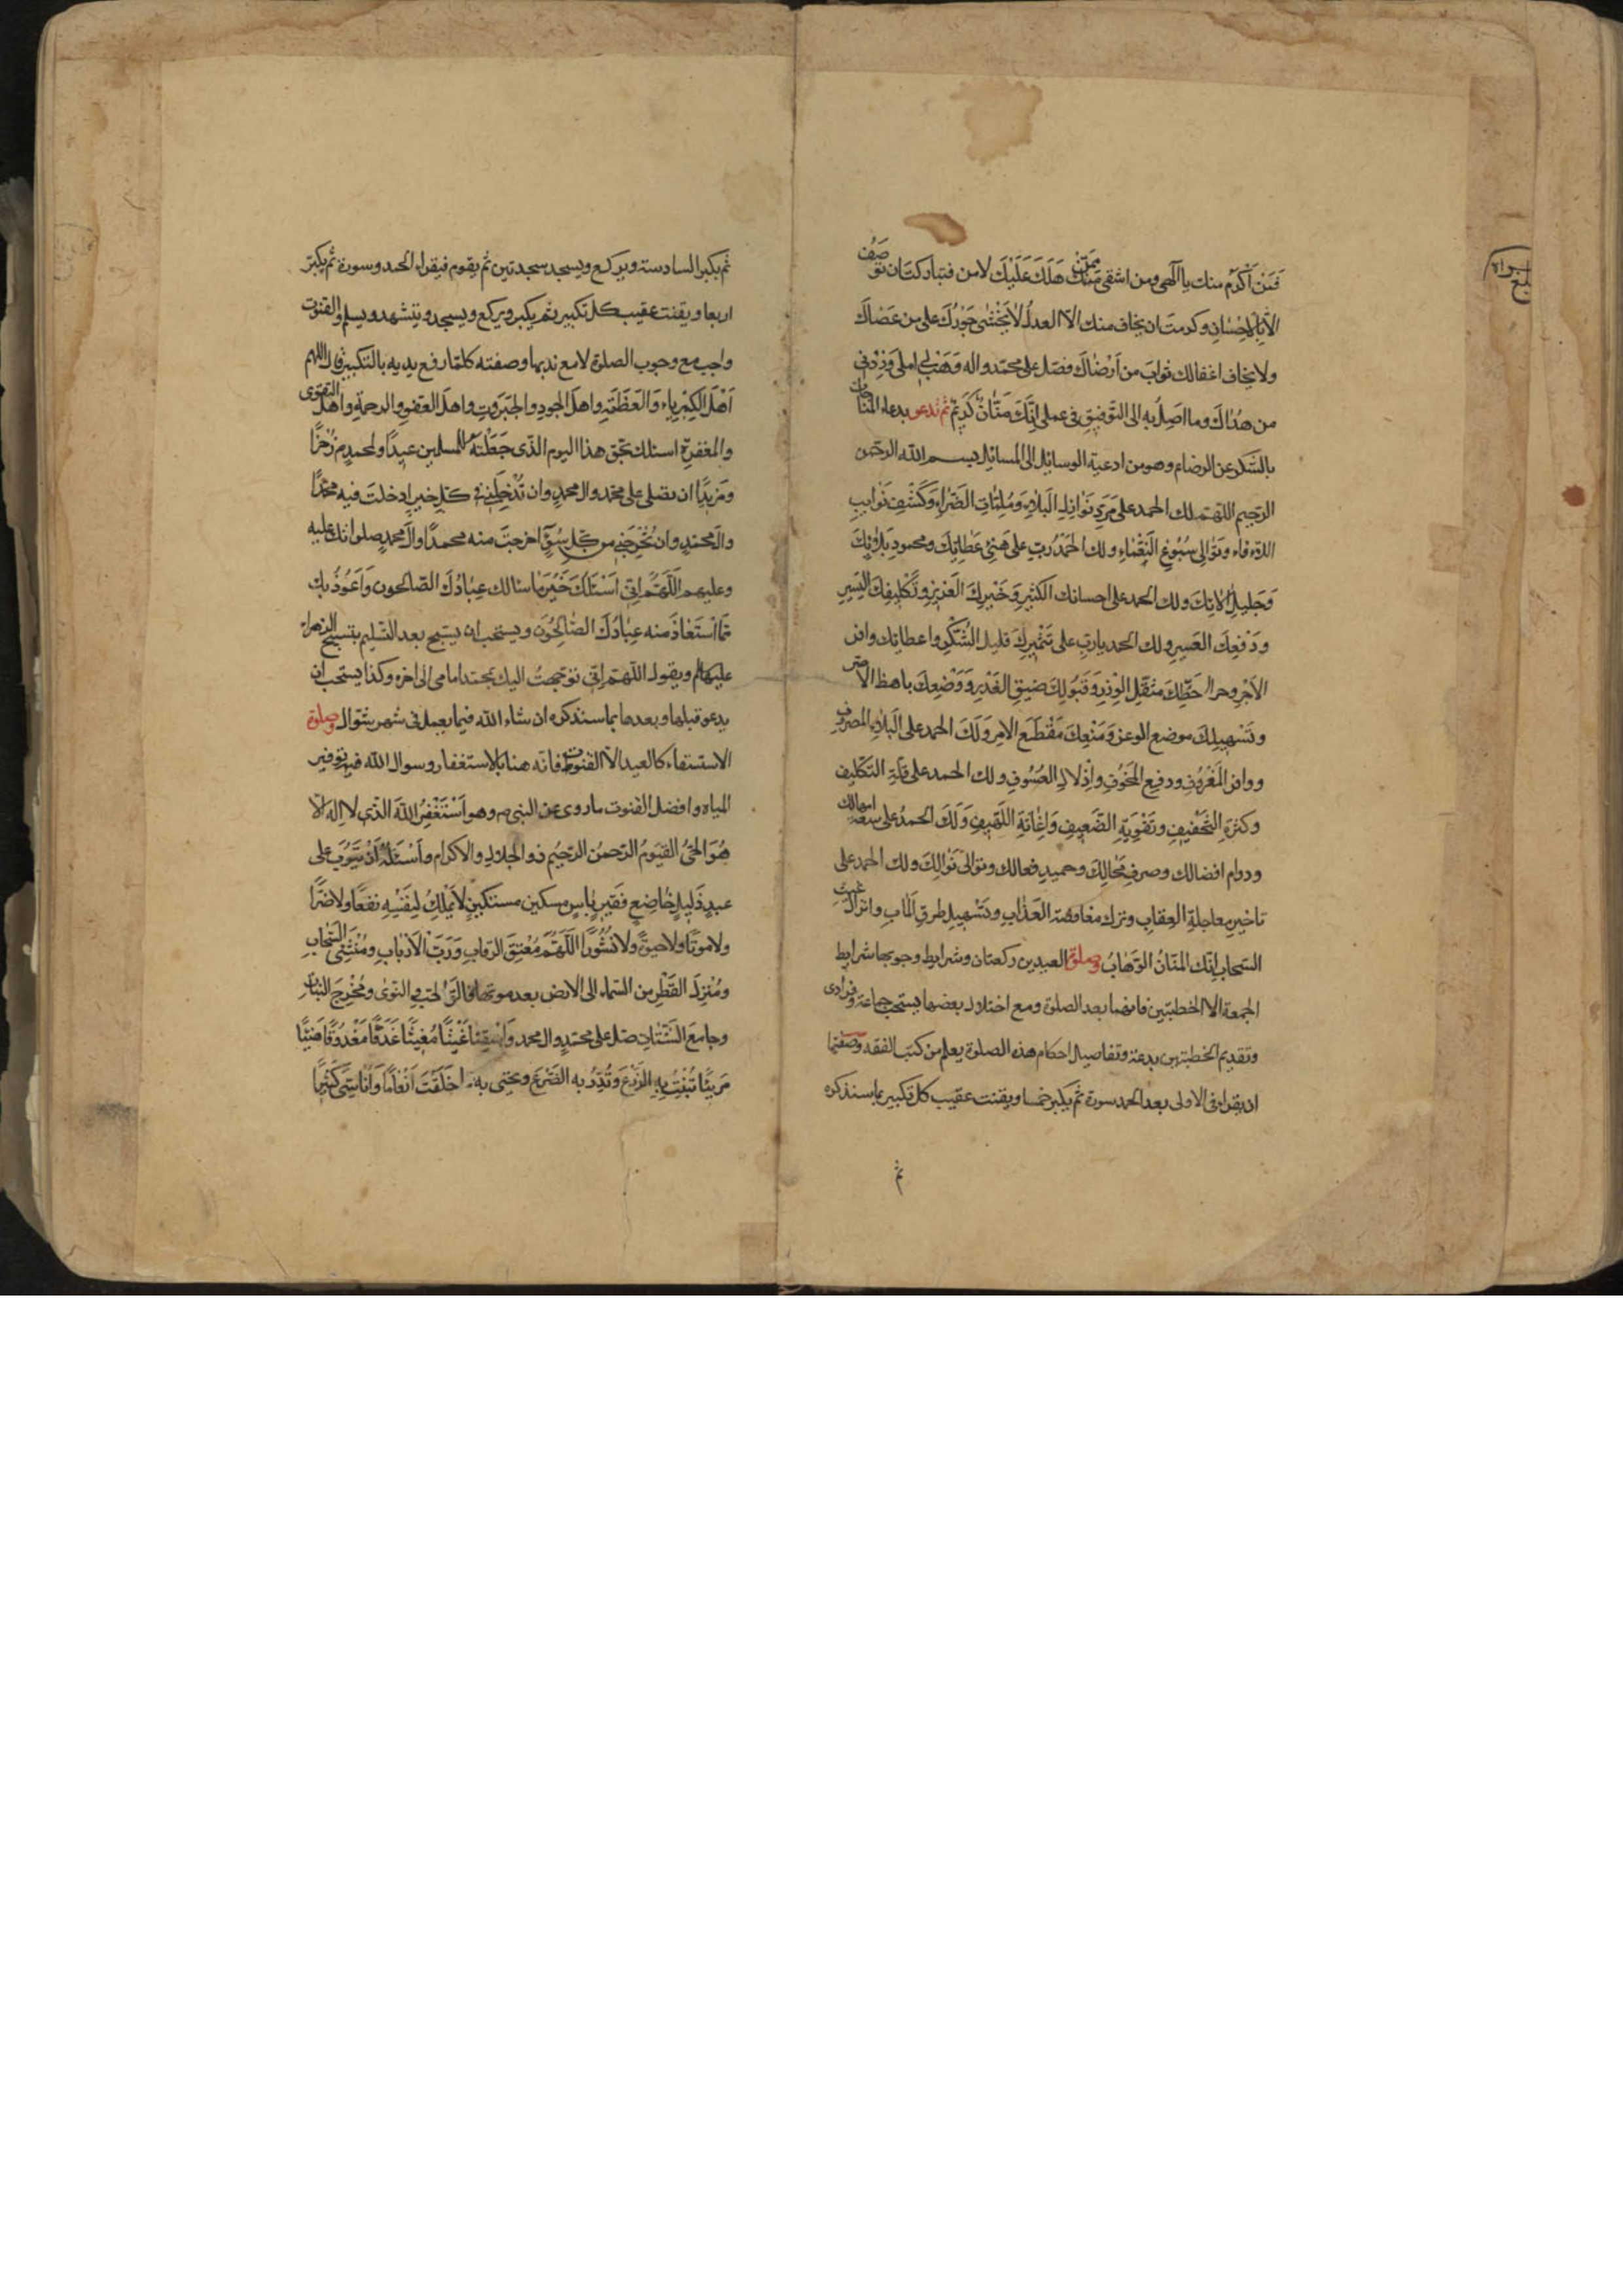 فَمَنْ اَكْرَمُ منك يا الٓهي ومن اشقى ممّن هَلَكَ عَلَيْكَ لا من فتباركت ان توصَفُ
الّا بِالاِحْسٰانِ وكرمت ان يخاف منك الّا العدلُ لا يُخْشٰى جَوْرُكَ على من عَصٰاكَ
ولا يخاف اغفالك ثوابَ من اَرْضٰاكَ فصَل على محمّد واله وَهَبْ لى املى وَزِدْنى
من هُدٰاكَ وما اصِلُ به الى التّوفيقِ فى عملى اِنّكَ مَنّانٌ كَرِيمٌ ثمّ تدعو بدعاء المناجات
بالشّكر عن الرضاء م وهو من ادعية الوسايل الى المسائل بسم اللّه الرحمن
الرحيم اللّهمّ لك الحمد على مَرَدِّ نَوٰازِلِ الْبَلاٰءِ وَمُلِمّٰاتِ الضَّرّٰاءِ وَكَشْفِ نَوٰايبِ
اللأواء وتَوٰالى سُبُوغِ النَّعْمٰاءِ ولك الحَمْدُ رَبِّ على هَنِئِ عَطائِكَ ومحمودِ بَلاٰئِكَ
وَجَليلِ اٰلاٰئِكَ ولك الحمد على احسانك الكثيرِ وَخَيْرِكَ الْغَزيرِ وتَكْليفِكَ الْيَسيرِ
وَدَفْعِكَ العَسيرِ ولك الحمد يا ربِ على تَثْميرِكَ قليلَ الشُّكْرِ واعطائك وافر
الاَجْرِ وحطِّكَ مثقَلَ الْوِزْرِ وَقَبُولِكَ ضيق العُذْرِ وَوَضْعِكَ باهظ الاصر
وتَسْهيلِكَ موضع الوعر وَمَنْعِكَ مَقْطَعَ الامر وَلَكَ الحمد على البلاء المصروف
ووافر المَعْرُوفِ ودفع المَخُوفِ واِذْلالِ العسُوفِ ولك الحمد على قلّة التكليف
وكثرة التَّخْفيفِ وتَقْوِيَةِ الضَّعيفِ وَاِغٰاثَةِ اللَّهيفِ وَلَكَ الحمدُ على سعة امهالك
ودوام افضالك وصرفِ مَحٰالِكَ وحميدِ فعالك وتوالى نَوٰالِكَ ولك الحمد على
تاخيرِ معاجلة العقاب وترك مغافصة العَذٰابِ وتَسْهيلِ طرقِ المَاب وانزال غيث
السّحاب اِنّك المنّانُ الوهّابُ وصلوة العيدين ركعتان وشرايط وجوبها شرايط
الجمعة الا الخطبتين فانهما بعد الصلوة ومع اختلال بعضها يستحب جماعة وفرادى
وتقديم الخطبتين بدعة وتفاصيل احكام هذه الصلوة يعلم من كتب الفقه وصفتها
ان يقراء فى الاولى بعد الحمد سورة ثم يكبر خمسا ويقنت عقيب كل تكبير بما سنذكره
ثم
ثم يكبر السادسة ويركع ويسجد سجدتين ثم يقوم فيقراء الحمد وسورة ثم يكبر
اربعا ويقنت عقيب كل تكبير ثم يكبر ويركع ويسجد ويتشهد ويسلم والقنوت
واجب مع وجوب الصلوة لا مع ندبها وصفته كلما رفع يديه بالتكبير قال اللهم
اَهْلَ الكِبْرِيٰاءِ وَالْعَظَمَةِ واهلَ الجودِ والجَبَرُوتِ واهلَ العَفوِ والرحمةِ واهلَ التقوى
والمغفرة اسئلك بحقّ هذا اليوم الّذى جَعَلْتَهُ للمسلمين عيدًا ولمحمدٍ م ذُخْرًا
ومَزيدًا ان تصلى على محمّد وال محمدٍ وان تُدْخِلَنى فى كلّ خير ادخلتَ فيه محمدًا
وال محمدٍ وان تُخْرِجَنى من كلّ سُوءٍ اخرجتَ منه محمدًا وال محمدٍ صلواتك عليه
وعليهم اَللّهُمَّ اِنّى اَسْئَلُكَ خَيْرَ ما سئالك عِبٰادُكَ الصّالحون وَاَعُوذُ بك
مَمّا اسْتَعٰاذَ منه عِبٰادُكَ الصّٰالِحُونَ ويستحب ان يسَبّح بعد التسليم بتسبيح الزهراء
عليها لم ويقول اللّهمّ اِنّى توجهتُ اليك بمحمّد امامى الى اخره وكذا يستحب ان
يدعو قبلها وبعدها بما سنذكره ان شاء اللّه فيما يعمل فى شهر شوّال وصلوة
الاستسقاء كالعيد الّا القنوت فانّه هنا بالاستغفار وسوال اللّه فيه توفير
المياه وافضل القنوت ما روى عن النبى م وهو اَسْتَغْفِرُ اللّهَ الّذى لا اِلٰه الّا
هُوَ الحىُّ القيّومُ الرّحمنُ الرّحيُم ذو الجلال والاكرام واَسْئَلُهُ اَنْ يَتُوبَ على
عبدٍ ذَليلٍ خٰاضِعٍ فَقيرٍ بٰاسٍ مسكين مستكينٍ لا يَملِكُ لِنَفْسِهِ نفعًا ولا ضرًّا
ولا موتًا ولا حيوةً ولا نُشُورًا اللَّهُمَّ مُعْتِقَ الرقابِ وَرَبَّ الاَرْبٰابِ ومُنْشِئَ السَّحٰابِ
ومُنْزِلَ القَطْرِ من السّماء الى الارض بعد موتها فالق الحب والنوى ومُخْرِجَ النبٰاتِ
وجامعَ الشَّتٰاتِ صَل على محمّدٍ وال محمد وَاسْقِنٰا غَيْثًا مُغيثًا غَدَقًا مَغْدُوقًا هَنيئًا
مَريئًا تُنْبِتُ بِهِ الزَّرْعَ وَتُدِرُّ به الضَّرْعَ وتحيى به مما خَلَقْتَ اَنْعٰامًا وَاَنٰاسِىَّ كَثيرًا